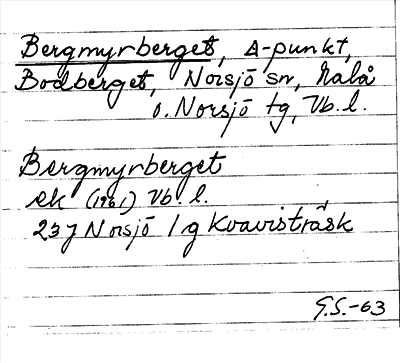 Bergmyrberget, Δ-punkt,
Bodberget, Norsjö sn, Malå
o. Norsjö tg, Vb. l.
Bergmyrberget
ek (1961) Vb. l.
23J Norsjö / g Kvavisträsk
G.S.-63